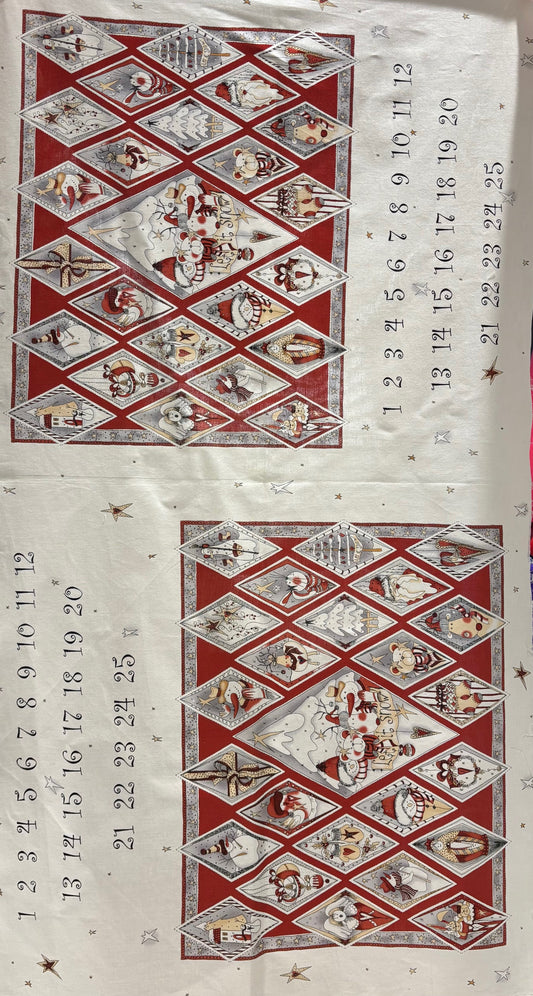 1 2 3 4 5 6 7 8 9 10 11 12
13 14 15 16 17 18 19 20
21 22 23 24 25
Let it snow
1 2 3 4 5 6 7 8 9 10 11 12
13 14 15 16 17 18 19 20
21 22 23 24 25
Let it snow